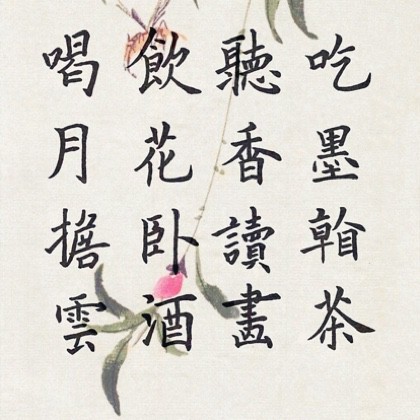 吃墨茶
聽香讀畫
飲花卧酒
喝月擔雲